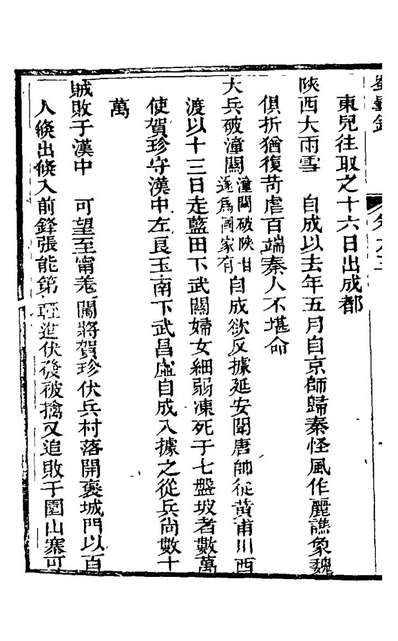 東兒往取之十六日出成都
陜西大雨雪　自成以去年五月自京師歸秦怪風作麗譙象魏
俱折猶復苛虐百端秦人不堪命
大兵破潼關潼關破陝甘遂爲國家有自成欲反據延安聞唐師從黃甫川西
渡以十三日走藍田下武關婦女細弱凍死于七盤坡者數萬
使賀珍守漢中左良玉南下武昌虛自成入據之從兵尚數十
萬
賊敗于漢中　可望至甯卷關將賀珍伏兵村落開褒城門以百
人倏出倏入前鋒張能第輕進伏發被擒又追敗于園山寨可